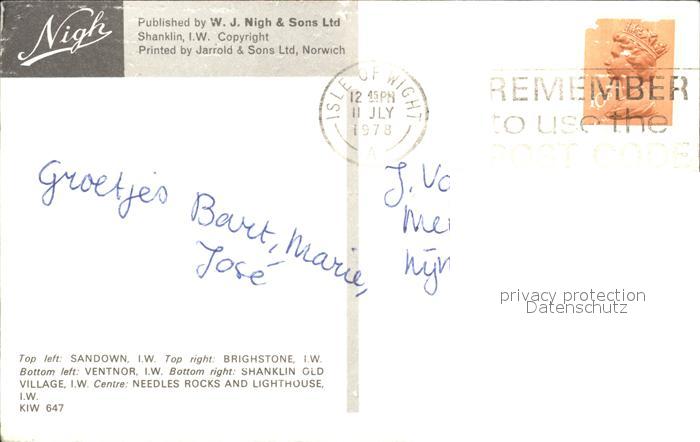 Nigh
Published by W. J. Nigh & Sons Ltd
Shanklin, I.W. Copyright
Printed by Jarrold & Sons Ltd, Norwich
ISLE OF WIGHT
12 45 PM
11 JLY
1978
A
REMEMBER
to use the
POST CODE
Groetjes
Bart, Marie,
José
J. Vo
Me
Nijm
privacy protection
Datenschutz
Top left: SANDOWN, I.W. Top right: BRIGHSTONE, I.W.
Bottom left: VENTNOR, I.W. Bottom right: SHANKLIN OLD
VILLAGE, I.W. Centre: NEEDLES ROCKS AND LIGHTHOUSE,
I.W.
KIW 647